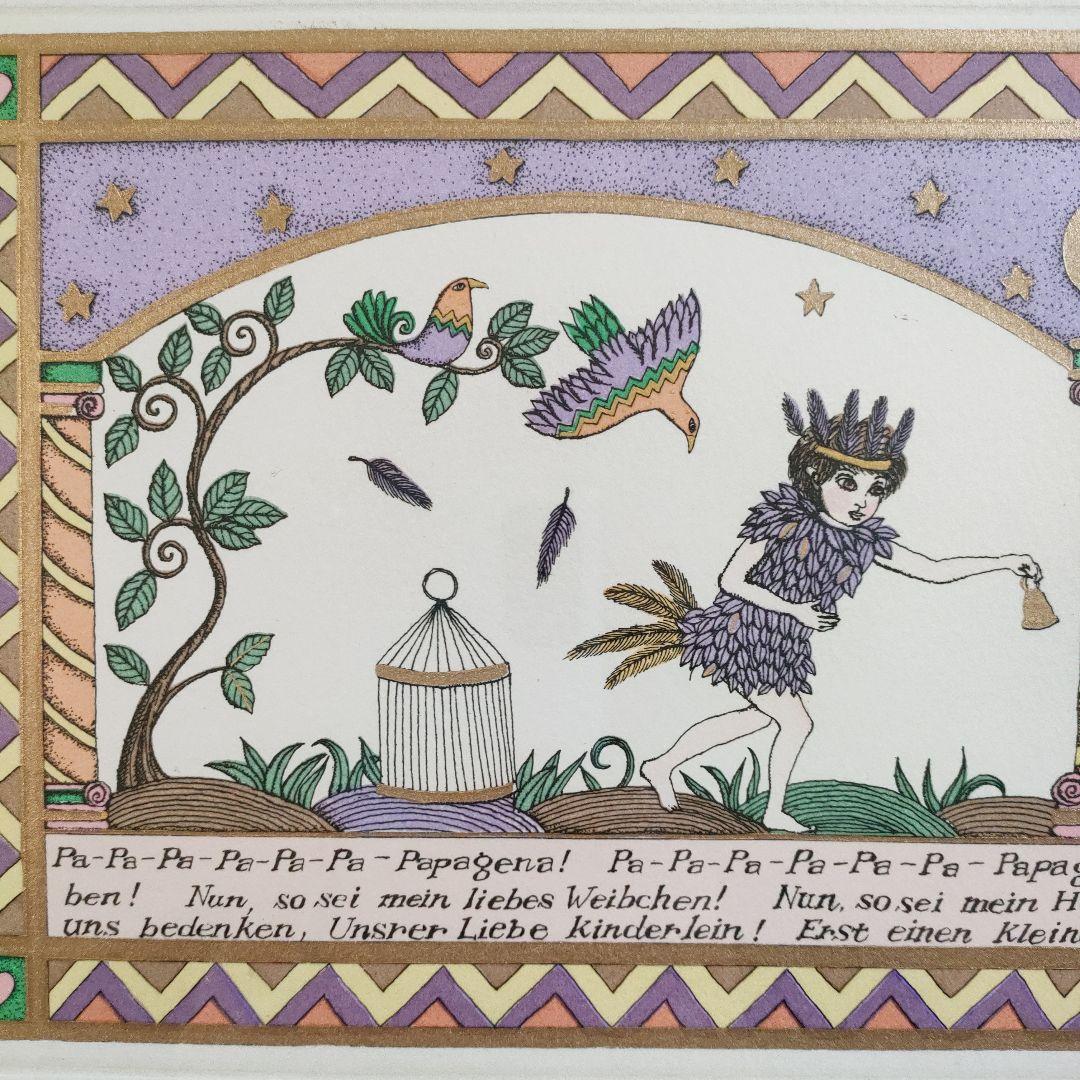 Pa-Pa-Pa-Pa-Pa-Pa-Papagena! Pa-Pa-Pa-Pa-Pa-Pa-Papag
ben! Nun, so sei mein liebes Weibchen! Nun, so sei mein H
uns bedenken, Unsrer Liebe kinderlein! Erst einen klein